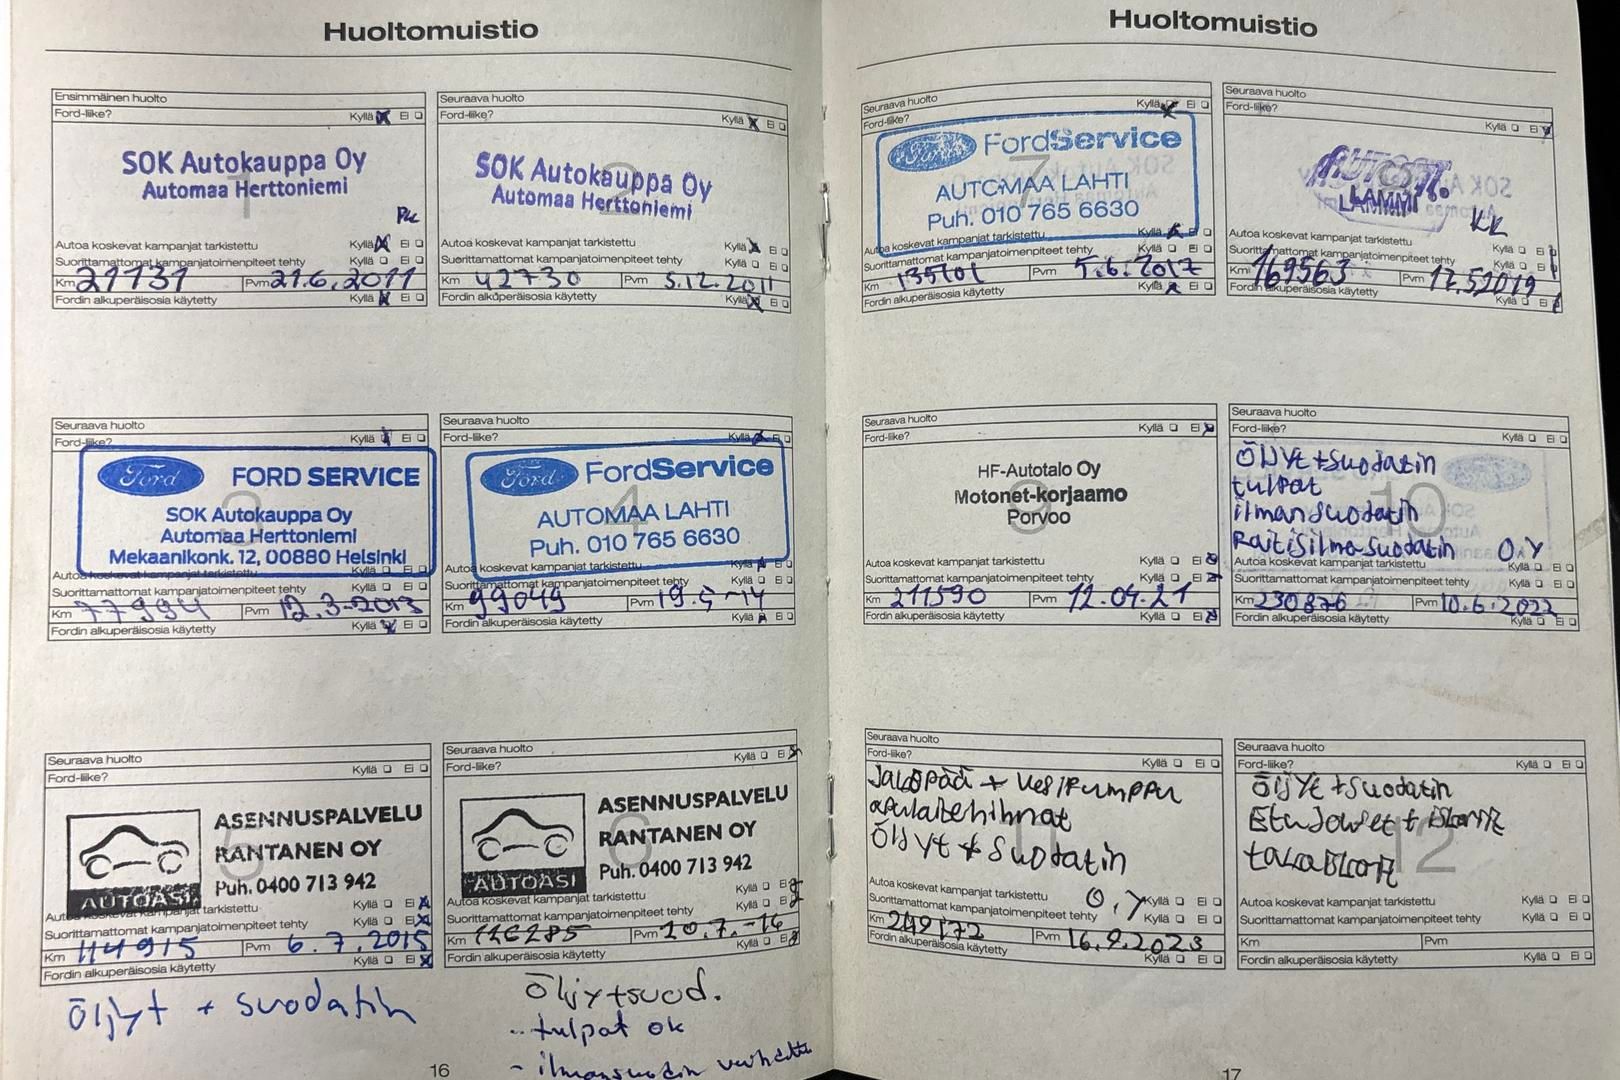 Huoltomuistio
Ensimmäinen huolto
Ford-liike? Kyllä Ei
1
SOK Autokauppa Oy
Automaa Herttoniemi
Autoa koskevat kampanjat tarkistettu Kyllä Ei
Suorittamattomat kampanjatoimenpiteet tehty Kyllä Ei
Km 21131 Pvm 21.6.2011
Fordin alkuperäisosia käytetty Kyllä Ei
Seuraava huolto
Ford-liike? Kyllä Ei
2
SOK Autokauppa Oy
Automaa Herttoniemi
Autoa koskevat kampanjat tarkistettu Kyllä Ei
Suorittamattomat kampanjatoimenpiteet tehty Kyllä Ei
Km 42730 Pvm 5.12.2011
Fordin alkuperäisosia käytetty Kyllä Ei
Seuraava huolto
Ford-liike? Kyllä Ei
3
Ford FORD SERVICE
SOK Autokauppa Oy
Automaa Herttoniemi
Mekaanikonk. 12, 00880 Helsinki
Autoa koskevat kampanjat tarkistettu Kyllä Ei
Suorittamattomat kampanjatoimenpiteet tehty Kyllä Ei
Km 77994 Pvm 12.3-2013
Fordin alkuperäisosia käytetty Kyllä Ei
Seuraava huolto
Ford-liike? Kyllä Ei
4
Ford FordService
AUTOMAA LAHTI
Puh. 010 765 6630
Autoa koskevat kampanjat tarkistettu Kyllä Ei
Suorittamattomat kampanjatoimenpiteet tehty Kyllä Ei
Km 99049 Pvm 19.5-14
Fordin alkuperäisosia käytetty Kyllä Ei
Seuraava huolto
Ford-liike? Kyllä Ei
5
ASENNUSPALVELU
RANTANEN OY
Puh. 0400 713 942
AUTOASI
Autoa koskevat kampanjat tarkistettu Kyllä Ei
Suorittamattomat kampanjatoimenpiteet tehty Kyllä Ei
Km 114915 Pvm 6.7.2015
Fordin alkuperäisosia käytetty Kyllä Ei
Öljyt + suodatin
Seuraava huolto Kyllä Ei
Ford-liike?
6
ASENNUSPALVELU
RANTANEN OY
Puh. 0400 713 942
AUTOASI
Autoa koskevat kampanjat tarkistettu Kyllä Ei
Suorittamattomat kampanjatoimenpiteet tehty Kyllä Ei
Km 126285 Pvm 20.7.-16
Fordin alkuperäisosia käytetty Kyllä Ei
Öljyt+suod.
- tulpat ok
16
Huoltomuistio
Seuraava huolto
Ford-liike? Kyllä Ei
7
Ford FordService
AUTOMAA LAHTI
Puh. 010 765 6630
Autoa koskevat kampanjat tarkistettu Kyllä Ei
Suorittamattomat kampanjatoimenpiteet tehty Kyllä Ei
Km 135101 Pvm 5.6.2017
Fordin alkuperäisosia käytetty Kyllä Ei
Seuraava huolto
Ford-liike? Kyllä Ei
LAMMI
KK
Autoa koskevat kampanjat tarkistettu Kyllä Ei
Suorittamattomat kampanjatoimenpiteet tehty Kyllä Ei
Km 169563 Pvm 17.52019
Fordin alkuperäisosia käytetty Kyllä Ei
Seuraava huolto
Ford-liike? Kyllä Ei
9
HF-Autotalo Oy
Motonet-korjaamo
Porvoo
Autoa koskevat kampanjat tarkistettu Kyllä Ei
Suorittamattomat kampanjatoimenpiteet tehty Kyllä Ei
Km 211590 Pvm 12.04.21
Fordin alkuperäisosia käytetty Kyllä Ei
Seuraava huolto
Ford-liike? Kyllä Ei
10
Öljyt +suodatin
tulpat
ilmansuodatin
Raitisilma-suodatin O.Y
Autoa koskevat kampanjat tarkistettu
Suorittamattomat kampanjatoimenpiteet tehty Kyllä Ei
Km 230876 Pvm 10.6.2022
Fordin alkuperäisosia käytetty Kyllä Ei
Seuraava huolto
Ford-liike? Kyllä Ei
11
Jakopää + vesipumppu
apulaitehihnat
Öljyt + suodatin
Autoa koskevat kampanjat tarkistettu O.Y Kyllä Ei
Suorittamattomat kampanjatoimenpiteet tehty Kyllä Ei
Km 249172 Pvm 16.9.2023
Fordin alkuperäisosia käytetty Kyllä Ei
Seuraava huolto
Ford-liike? Kyllä Ei
12
Öljyt +suodatin
Autoa koskevat kampanjat tarkistettu Kyllä Ei
Suorittamattomat kampanjatoimenpiteet tehty Kyllä Ei
Km Pvm
Fordin alkuperäisosia käytetty Kyllä Ei
17